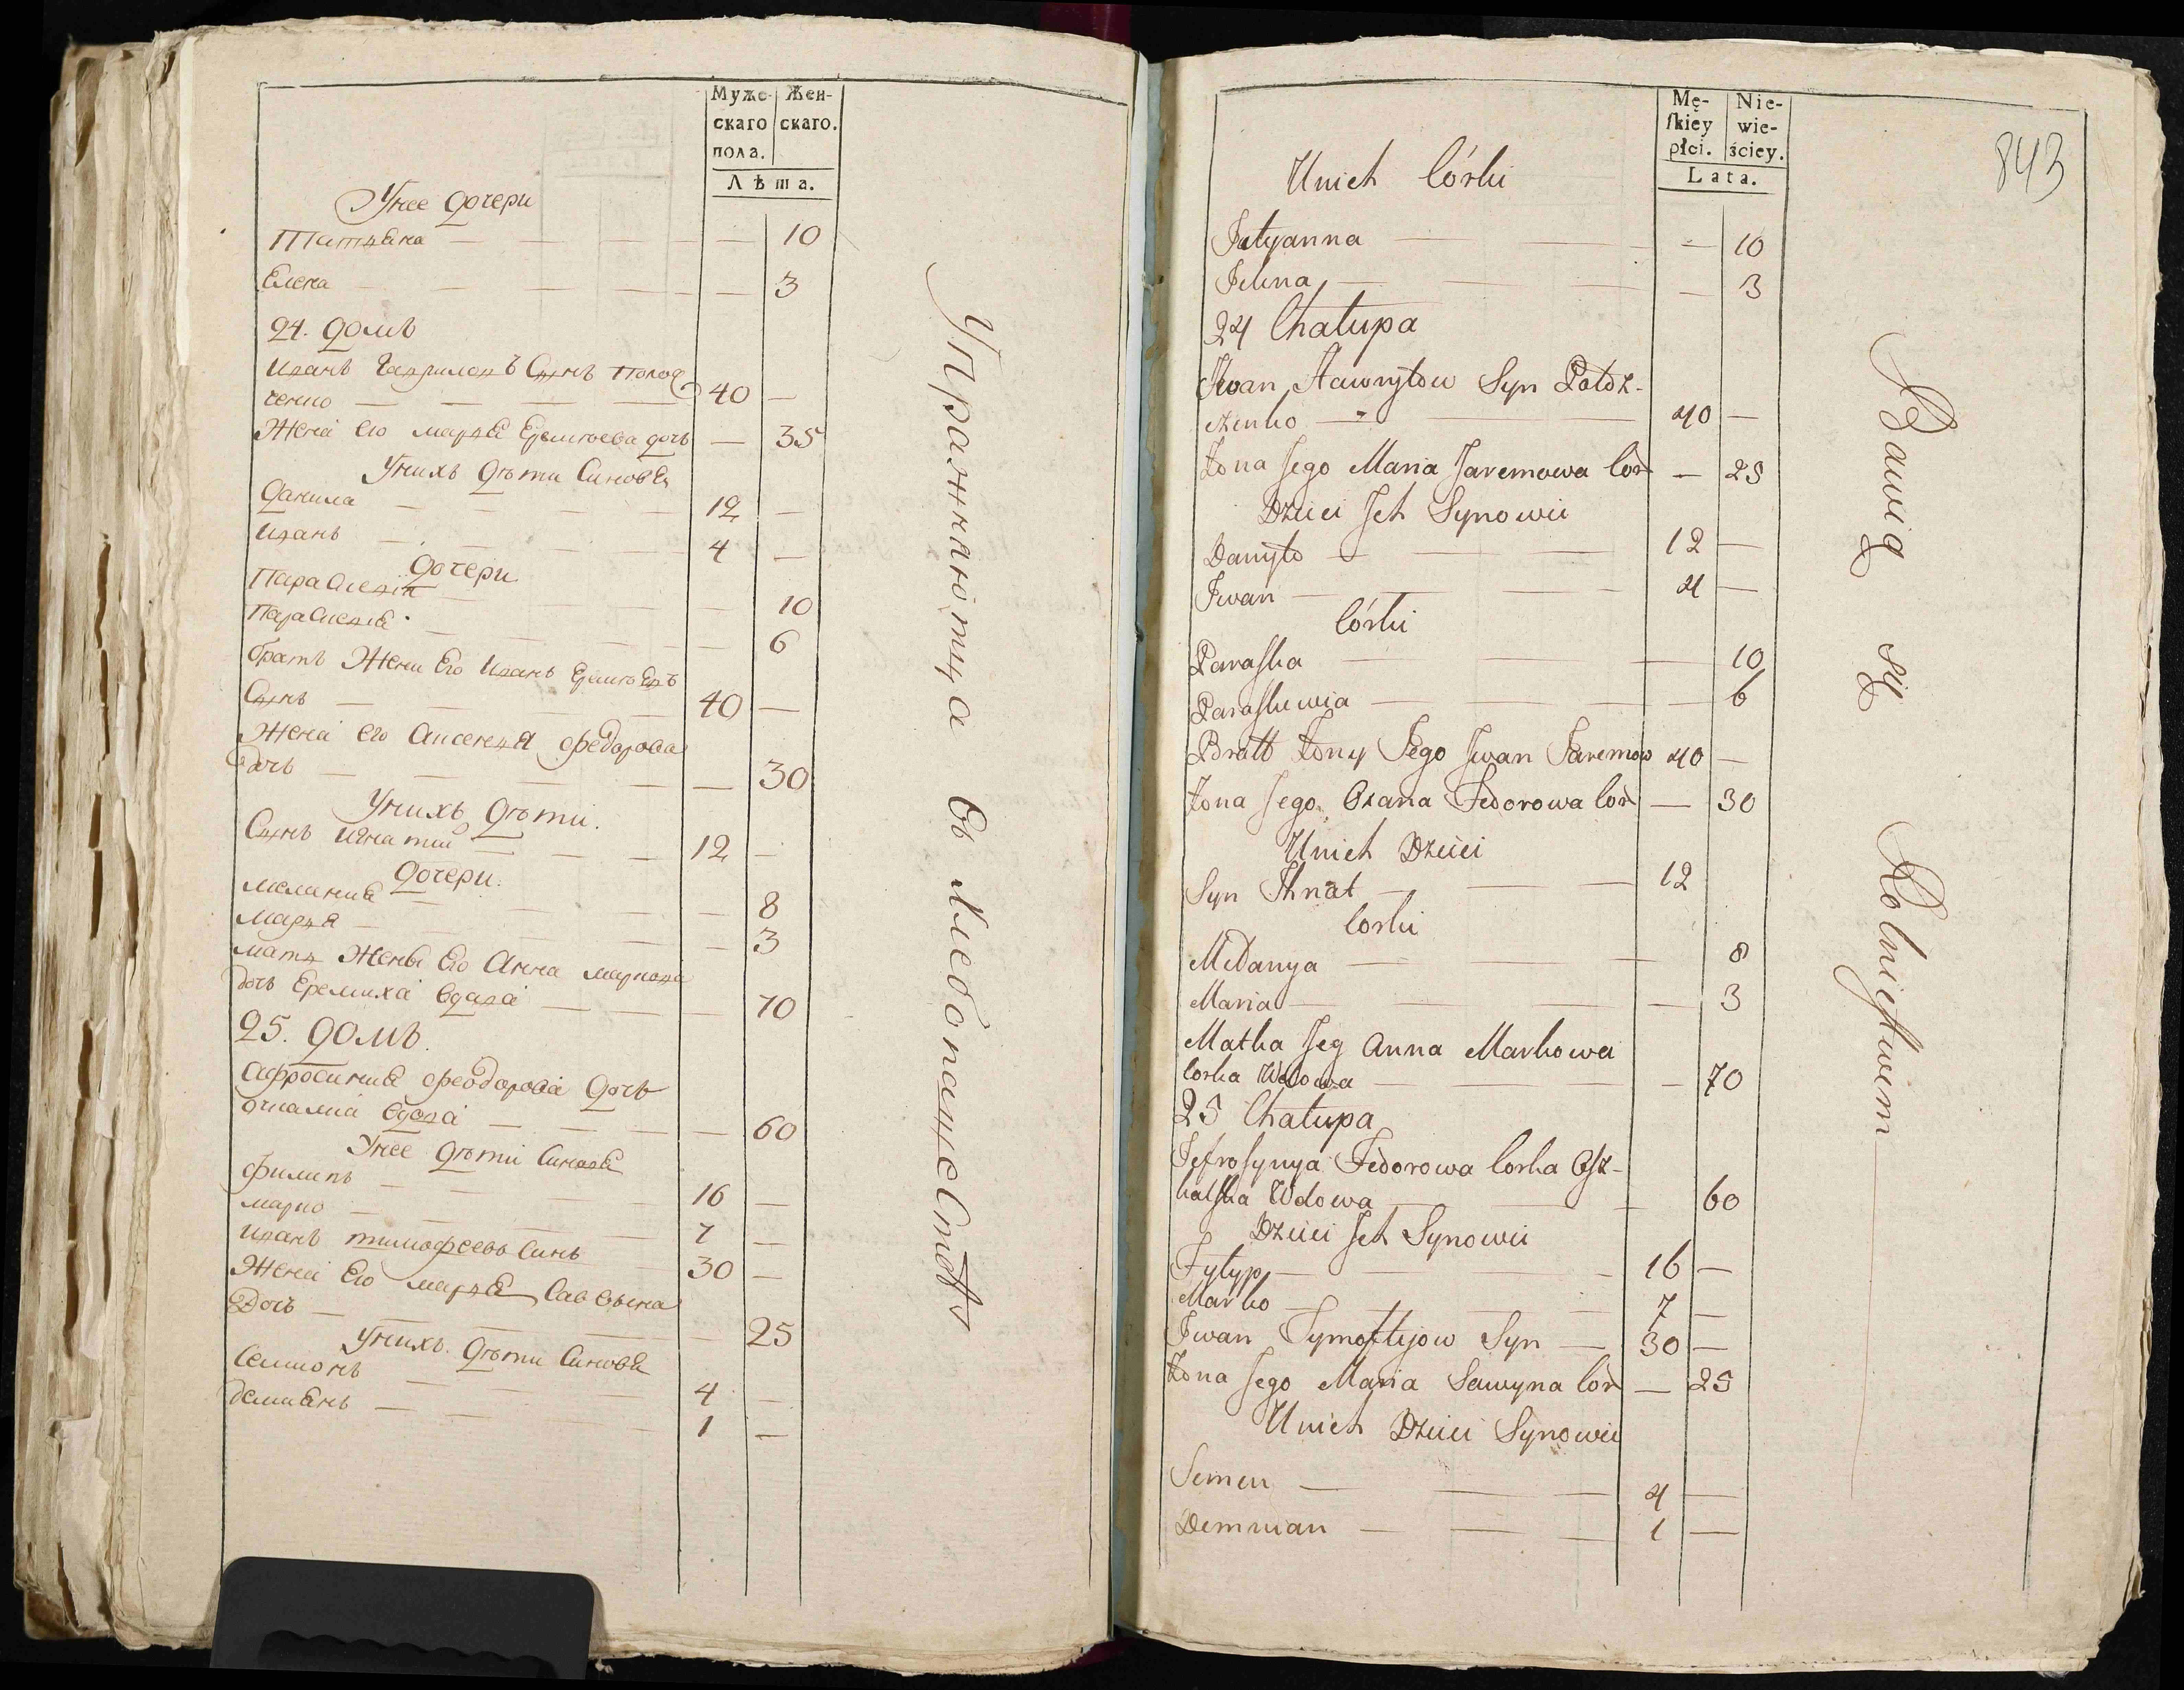 Муже-
скаго
пола.
Жен-
скаго.
Лѣта.
Унее дочери
Татьяна — — — — 10
Елена — — — — 3
24. домъ
Иванъ Гавриловъ Сынъ Полод
ченко — — — 40 —
Жена его марья Еремѣева дочь — 35
Унихъ дѣти Синовья
данила — — — 12 —
иванъ — — — 4 —
дочери
Параскевия — — — 10
Параскевия — — — 6
братъ Жени Его иванъ Еремѣевъ
Сынъ — — 40 —
Жена его Аксенья федорова
дочь — — — 30
Унихъ дѣти.
Сынъ игнатий — — 12 —
дочери.
мелания — — — 8
марья — — — 3
мать Жены Его Анна маркова
дочь Еремиха вдова — — 70
25. домъ.
Афросиния феодорова дочь
вдова — — — 60
Унее дѣти Синовья
филипъ — — 16 —
марко — — — 7 —
иванъ тимофеевъ Синъ 30 —
Жена Его марья Саввъина
дочь — — — 25
Унихъ. дѣти Синовья
Семионъ — — 4 —
демиянъ — — 1 —
Упражняютца въ хлебопашествѣ
Mę-
ſkiey
płci.
Nie-
wie-
ściey.
Lata.
843
Unich Córki
Tatyanna — — — 10
Jelena — — — 3
24 Chałupa
Iwan Hawryłow Syn Połoz-
czenko — — 40 —
Żona Jego Maria Jaremowa Cór — 25
Dzieci Jch Synowii
Danyło — — 12 —
Iwan — — 4 —
Córki
Paraſka — — — 10
Paraſkewia — — — 6
Bratt Żony Jego Jwan Jaremow 40 —
Żona Jego Oxana Fedorowa Cór — 30
Unich Dzieci
Syn Ihnat — — 12
Corki
Melanya — — 8
Maria — — — 3
Matka Jeg Anna Markowa
Corka Wdowa — — — 70
25 Chałupa
Jefroſynya Fedorowa Corka
Wdowa — — 60
Dzieci Jch Synowii
Fylyp — — 16 —
Marko — — 7 —
Iwan Tymoftijow Syn — 30 —
Żona Jego Maria Sawyna Cór — 25
Unich Dzieci Synowii
Semen — — — 4 —
Demmian — — — 1 —
Bawią się Rolnictwem